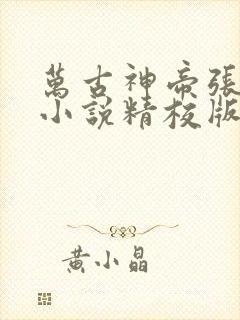 萬古神帝張
小說精校版
黃小晶